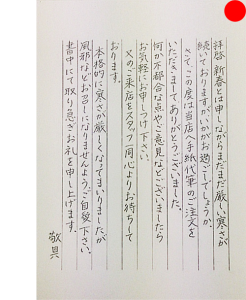 拝啓 新春とは申しながらまだまだ厳しい寒さが
続いておりますが、いかがお過ごしでしょうか。
さて、この度は当店へ手紙代筆のご注文を
いただきましてありがとうございました。
何か不都合な点やご意見などございましたら
お気軽にお申しつけ下さい。
又のご来店をスタッフ一同心よりお待ちして
おります。
本格的に寒さが厳しくなってまいりましたが
風邪などお召しになりませんよう、ご自愛下さい。
書中にて取り急ぎお礼を申し上げます。
敬具